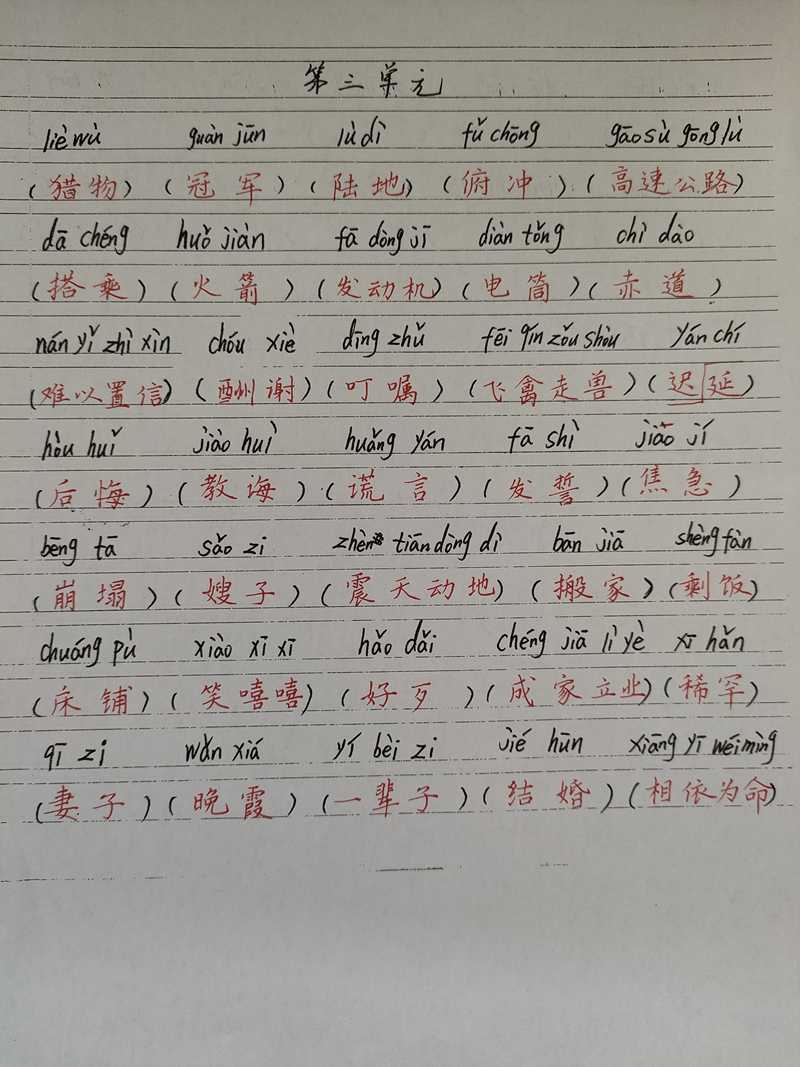 第三单元
liè wù guàn jūn lù dì fǔ chōng gāo sù gōng lù
(猎物) (冠军) (陆地) (俯冲) (高速公路)
dā chéng huǒ jiàn fā dòng jī diàn tǒng chì dào
(搭乘) (火箭) (发动机) (电筒) (赤道)
nán yǐ zhì xìn chóu xiè dīng zhǔ fēi qín zǒu shòu yán chí
(难以置信) (酬谢) (叮嘱) (飞禽走兽) (迟延)
hòu huǐ jiào huì huǎng yán fā shì jiāo jí
(后悔) (教诲) (谎言) (发誓) (焦急)
bēng tā sǎo zi zhèn tiān dòng dì bān jiā shèng fàn
(崩塌) (嫂子) (震天动地) (搬家) (剩饭)
chuáng pù xiào xī xī hǎo dǎi chéng jiā lì yè xī hǎn
(床铺) (笑嘻嘻) (好歹) (成家立业) (稀罕)
qī zi wǎn xiá yí bèi zi jié hūn xiāng yī wéi mìng
(妻子) (晚霞) (一辈子) (结婚) (相依为命)